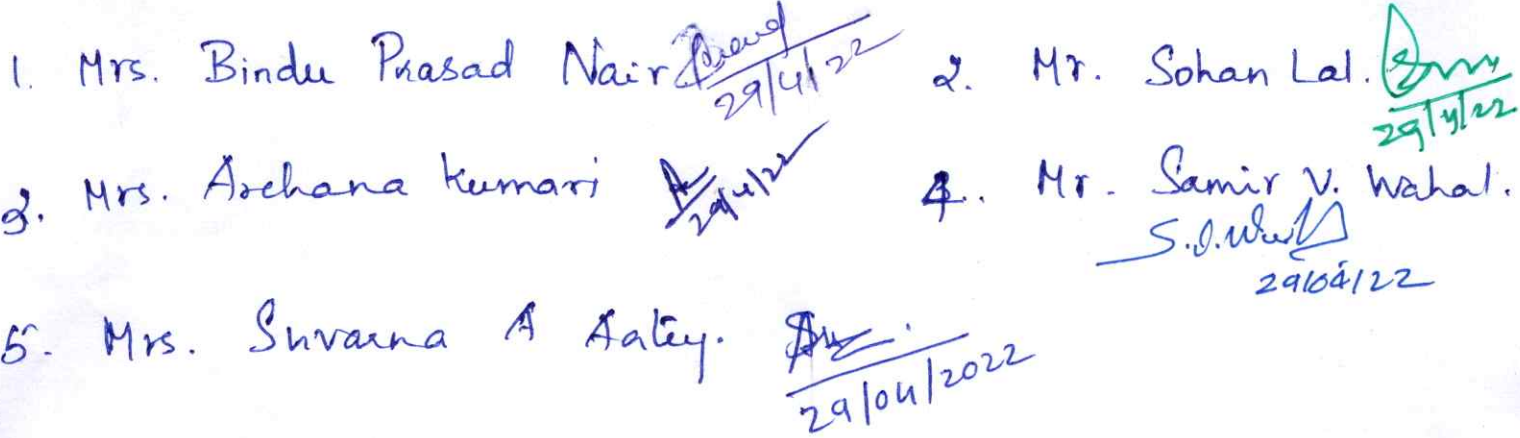 1. Mrs. Bindu Prasad Nair 29/4/22
2. Mr. Sohan Lal. 29/4/22
3. Mrs. Archana Kumari 29/4/22
4. Mr. Samir V. Wahal.
29/04/22
5. Mrs. Suvarna A Aatey.
29/04/2022